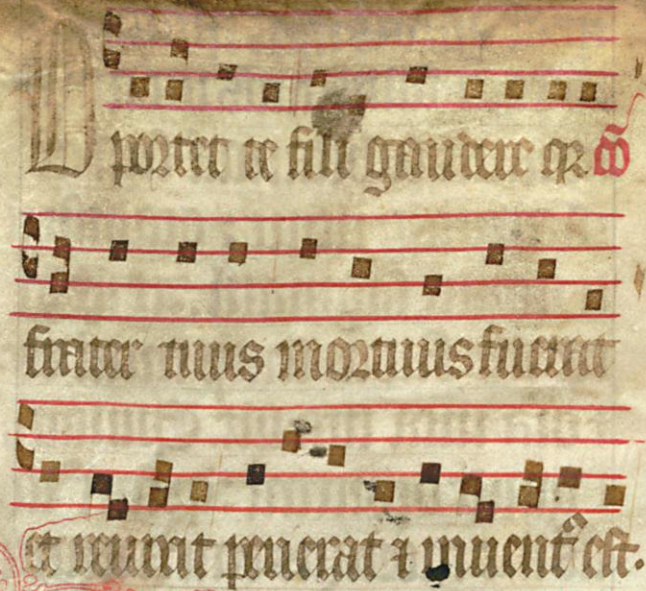 Oportet te fili gaudere qr cō
frater tuus mortuus fuerat
et reuixit perierat ⁊ inuentꝰ est.